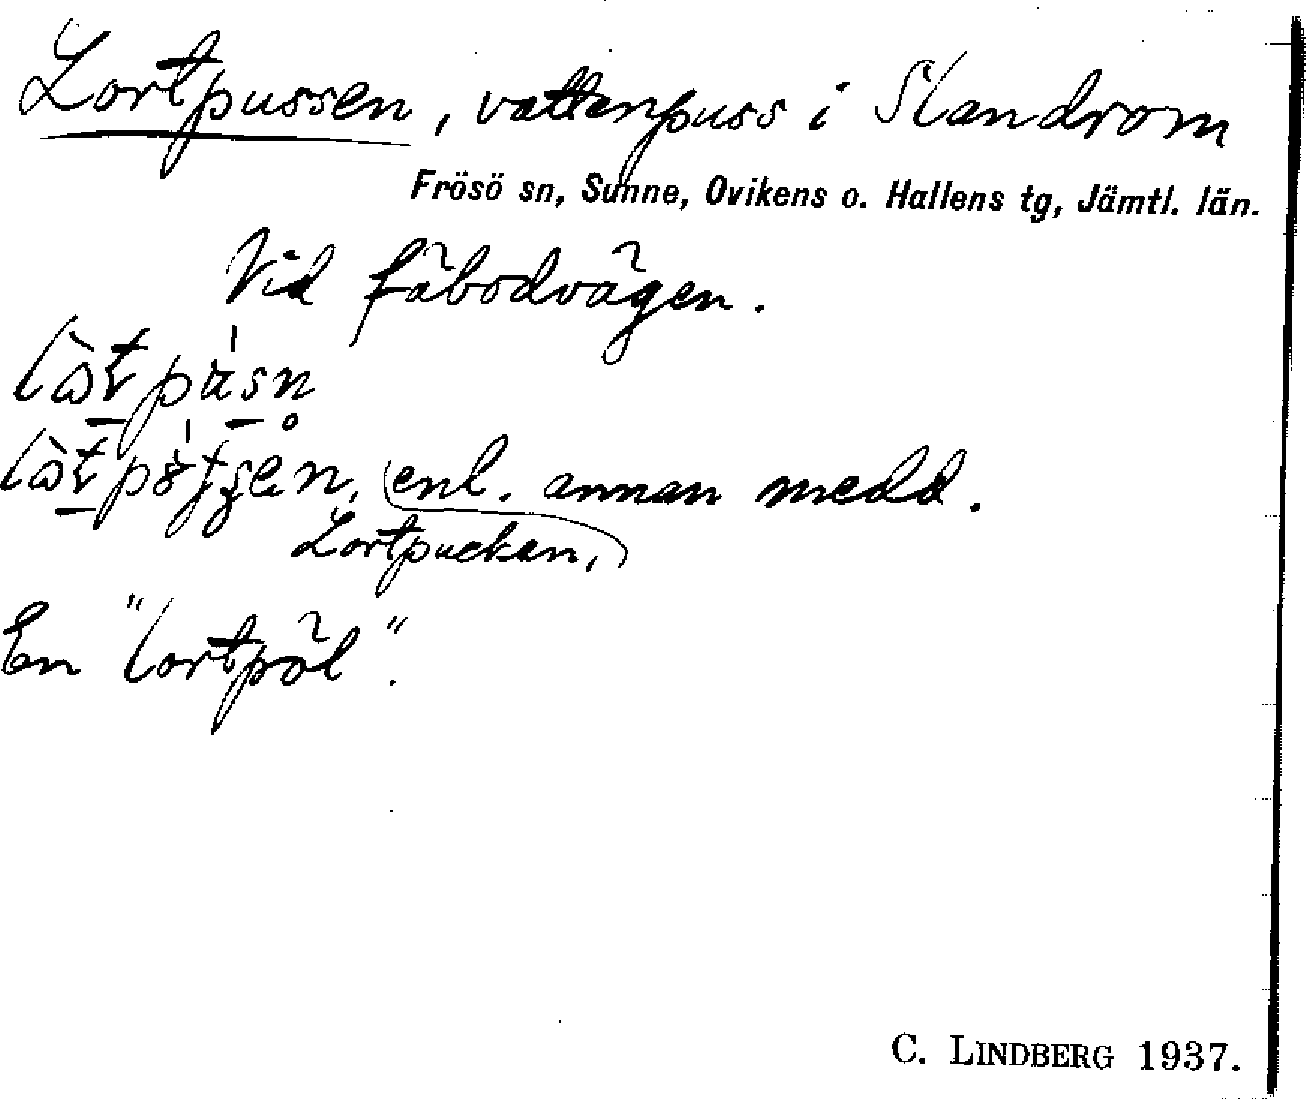 Lortpussen, vattenpuss i Slandrom
Frösö sn, Sunne, Ovikens o. Hallens tg, Jämtl. län.
Vid fäbodvägen.
enl. annan medd.
Lortpucken,)
En "lortpöl".
C. LINDBERG 1937.